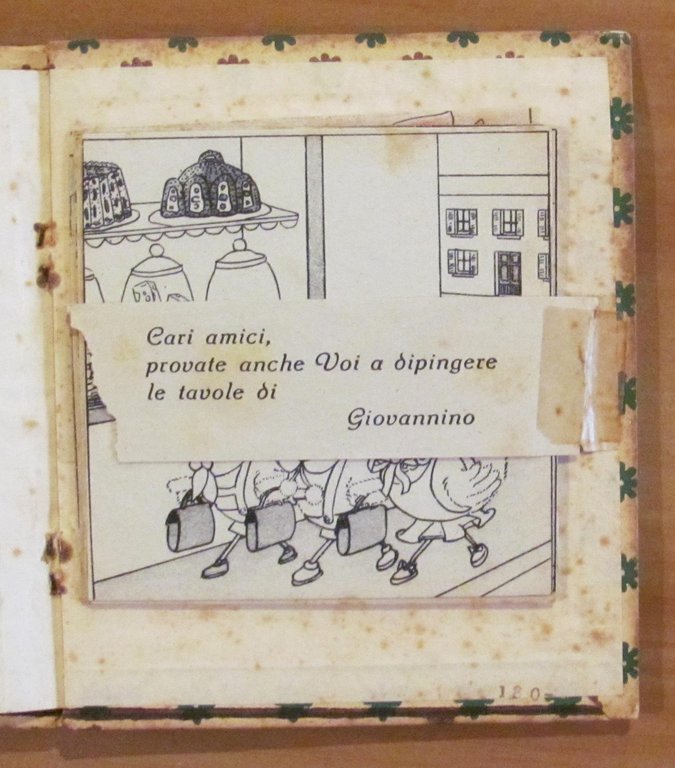 Cari amici,
provate anche Voi a dipingere
le tavole di
Giovannino
120=